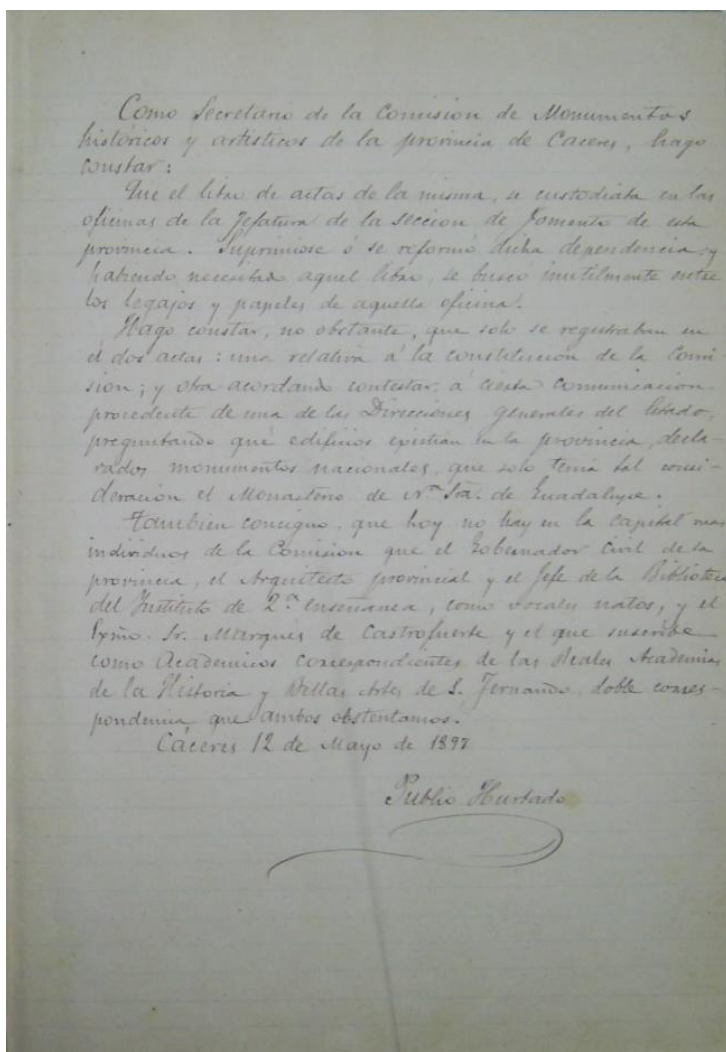 Como Secretario de la Comision de Monumentos
históricos y artísticos de la provincia de Caceres, hago
constar:
Que el libro de actas de la misma, se custodiaba en las
oficinas de la Jefatura de la seccion de Fomento de esta
provincia. Suprimiose ó se reformó dicha dependencia, y
habiendo necesitado aquel libro, se busco inutilmente entre
los legajos y papeles de aquella oficina.
Hago constar, no obstante, que solo se registraban en
él dos actas: una relativa á la constitucion de la Comi-
sion; y otra acordando contestar, á cierta comunicacion
procedente de una de las Direcciones generales del Estado,
preguntando qué edificios existian en la provincia, decla-
rados monumentos nacionales, que solo tenia tal consi-
deracion el Monasterio de Nra. Sra. de Guadalupe.
Tambien consigno, que hoy no hay en la capital mas
individuos de la Comision que el Gobernador Civil de la
provincia, el Arquitecto provincial y el Jefe de la Biblioteca
del Instituto de 2.ª enseñanza, como vocales natos, y el
Exmo. Sr. Marqués de Castrofuerte y el que suscribe
como Academicos correspondientes de las Reales Academias
de la Historia y Bellas Artes de S. Fernando, doble corres-
pondencia que ambos obstentamos.
Cáceres 12 de Mayo de 1897
Publio Hurtado